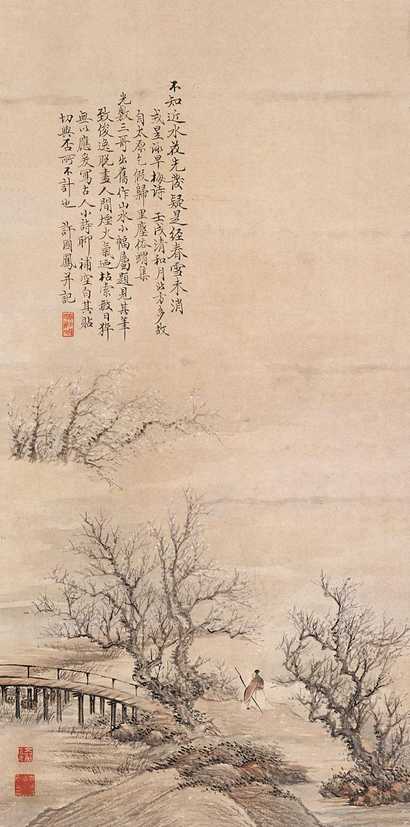 不知近水花先發疑是經春雪未消
戎昱詠早梅詩 壬戌清和月北方多故
自太原乞假歸里塵俗蝟集
光三哥出舊作山水小幅屬題見其筆
致俊逸脫盡人間煙火氣迺枯索數日猝
無以應爰寫古人小詩聊補空白其貼
切與否所不計也 許國鳳并記